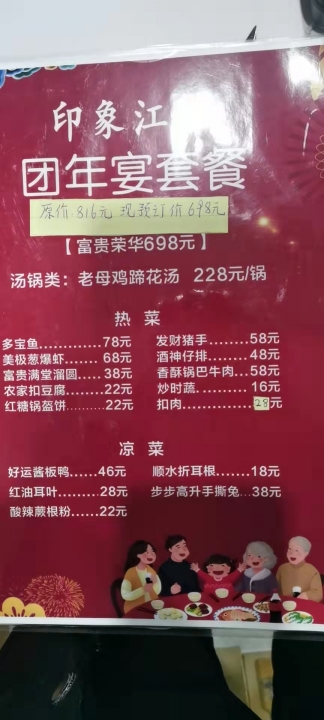 印象江
团年宴套餐
原价816元 现预订价698元
【富贵荣华698元】
汤锅类：老母鸡蹄花汤 228元/锅
热菜
多宝鱼......78元 发财猪手......58元
美极葱爆虾......68元 酒神仔排......48元
富贵满堂溜圆......38元 香酥锅巴牛肉...58元
农家扣豆腐......22元 炒时蔬......16元
红糖锅盔饼......22元 扣肉......28元
凉菜
好运酱板鸭......46元 顺水折耳根......18元
红油耳叶......28元 步步高升手撕兔...38元
酸辣蕨根粉......22元